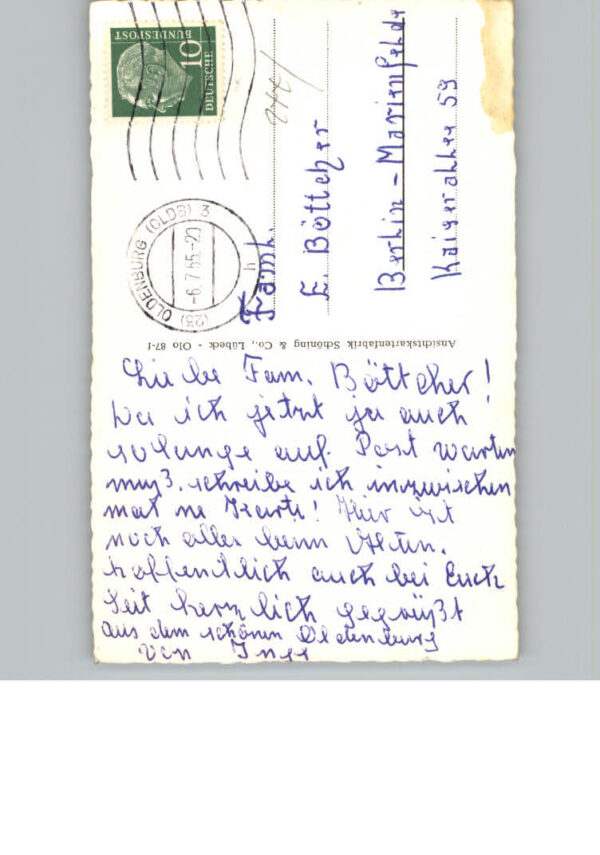 DEUTSCHE
BUNDESPOST
10
(23) OLDENBURG (OLDB) 3
-6.7.55-20
h
Faml.
E. Böttcher
Berlin-Marienfelde
Kaiserallee 59
Ansichtskartenfabrik Schöning & Co., Lübeck - Olo 87-f
Liebe Fam. Böttcher!
Da ich jetzt ja auch
solange auf Post warten
muß, schreibe ich inzwischen
mal ne Karte! Hier ist
noch alles beim Alten.
hoffentlich auch bei Euch
Seit herzlich gegrüßt
aus dem schönen Oldenburg
von Inge